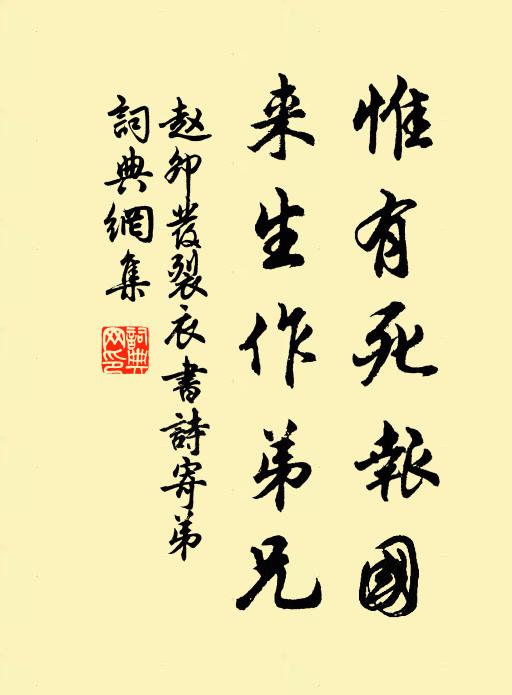 惟有死報國
来生作弟兄
赵卯發裂衣書詩寄弟
詞典網集
詞典网印